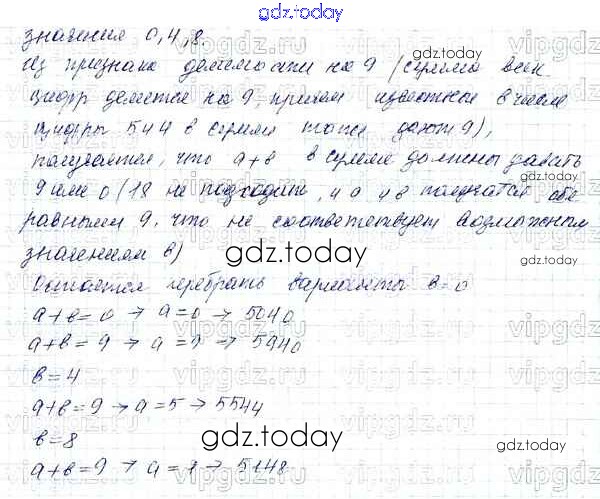 gdz.today
значения 0, 4, 8.
gdz.today
Из признака делимости на 9 (сумма всех
цифр делится на 9, причем известные в числе
цифры 544 в сумме тоже дают 9),
получается, что а+в в сумме должны давать
9 или 0 (18 не подходит, и а и в получатся обе
равными 9, что не соответствует возможным
значениям в)
gdz.today
Остается перебрать варианты в=0
а+в=0 → а=0 → 5040
а+в=9 → а=9 → 5940
в=4
а+в=9 → а=5 → 5544
в=8
gdz.today
а+в=9 → а=1 → 5148
gdz.today